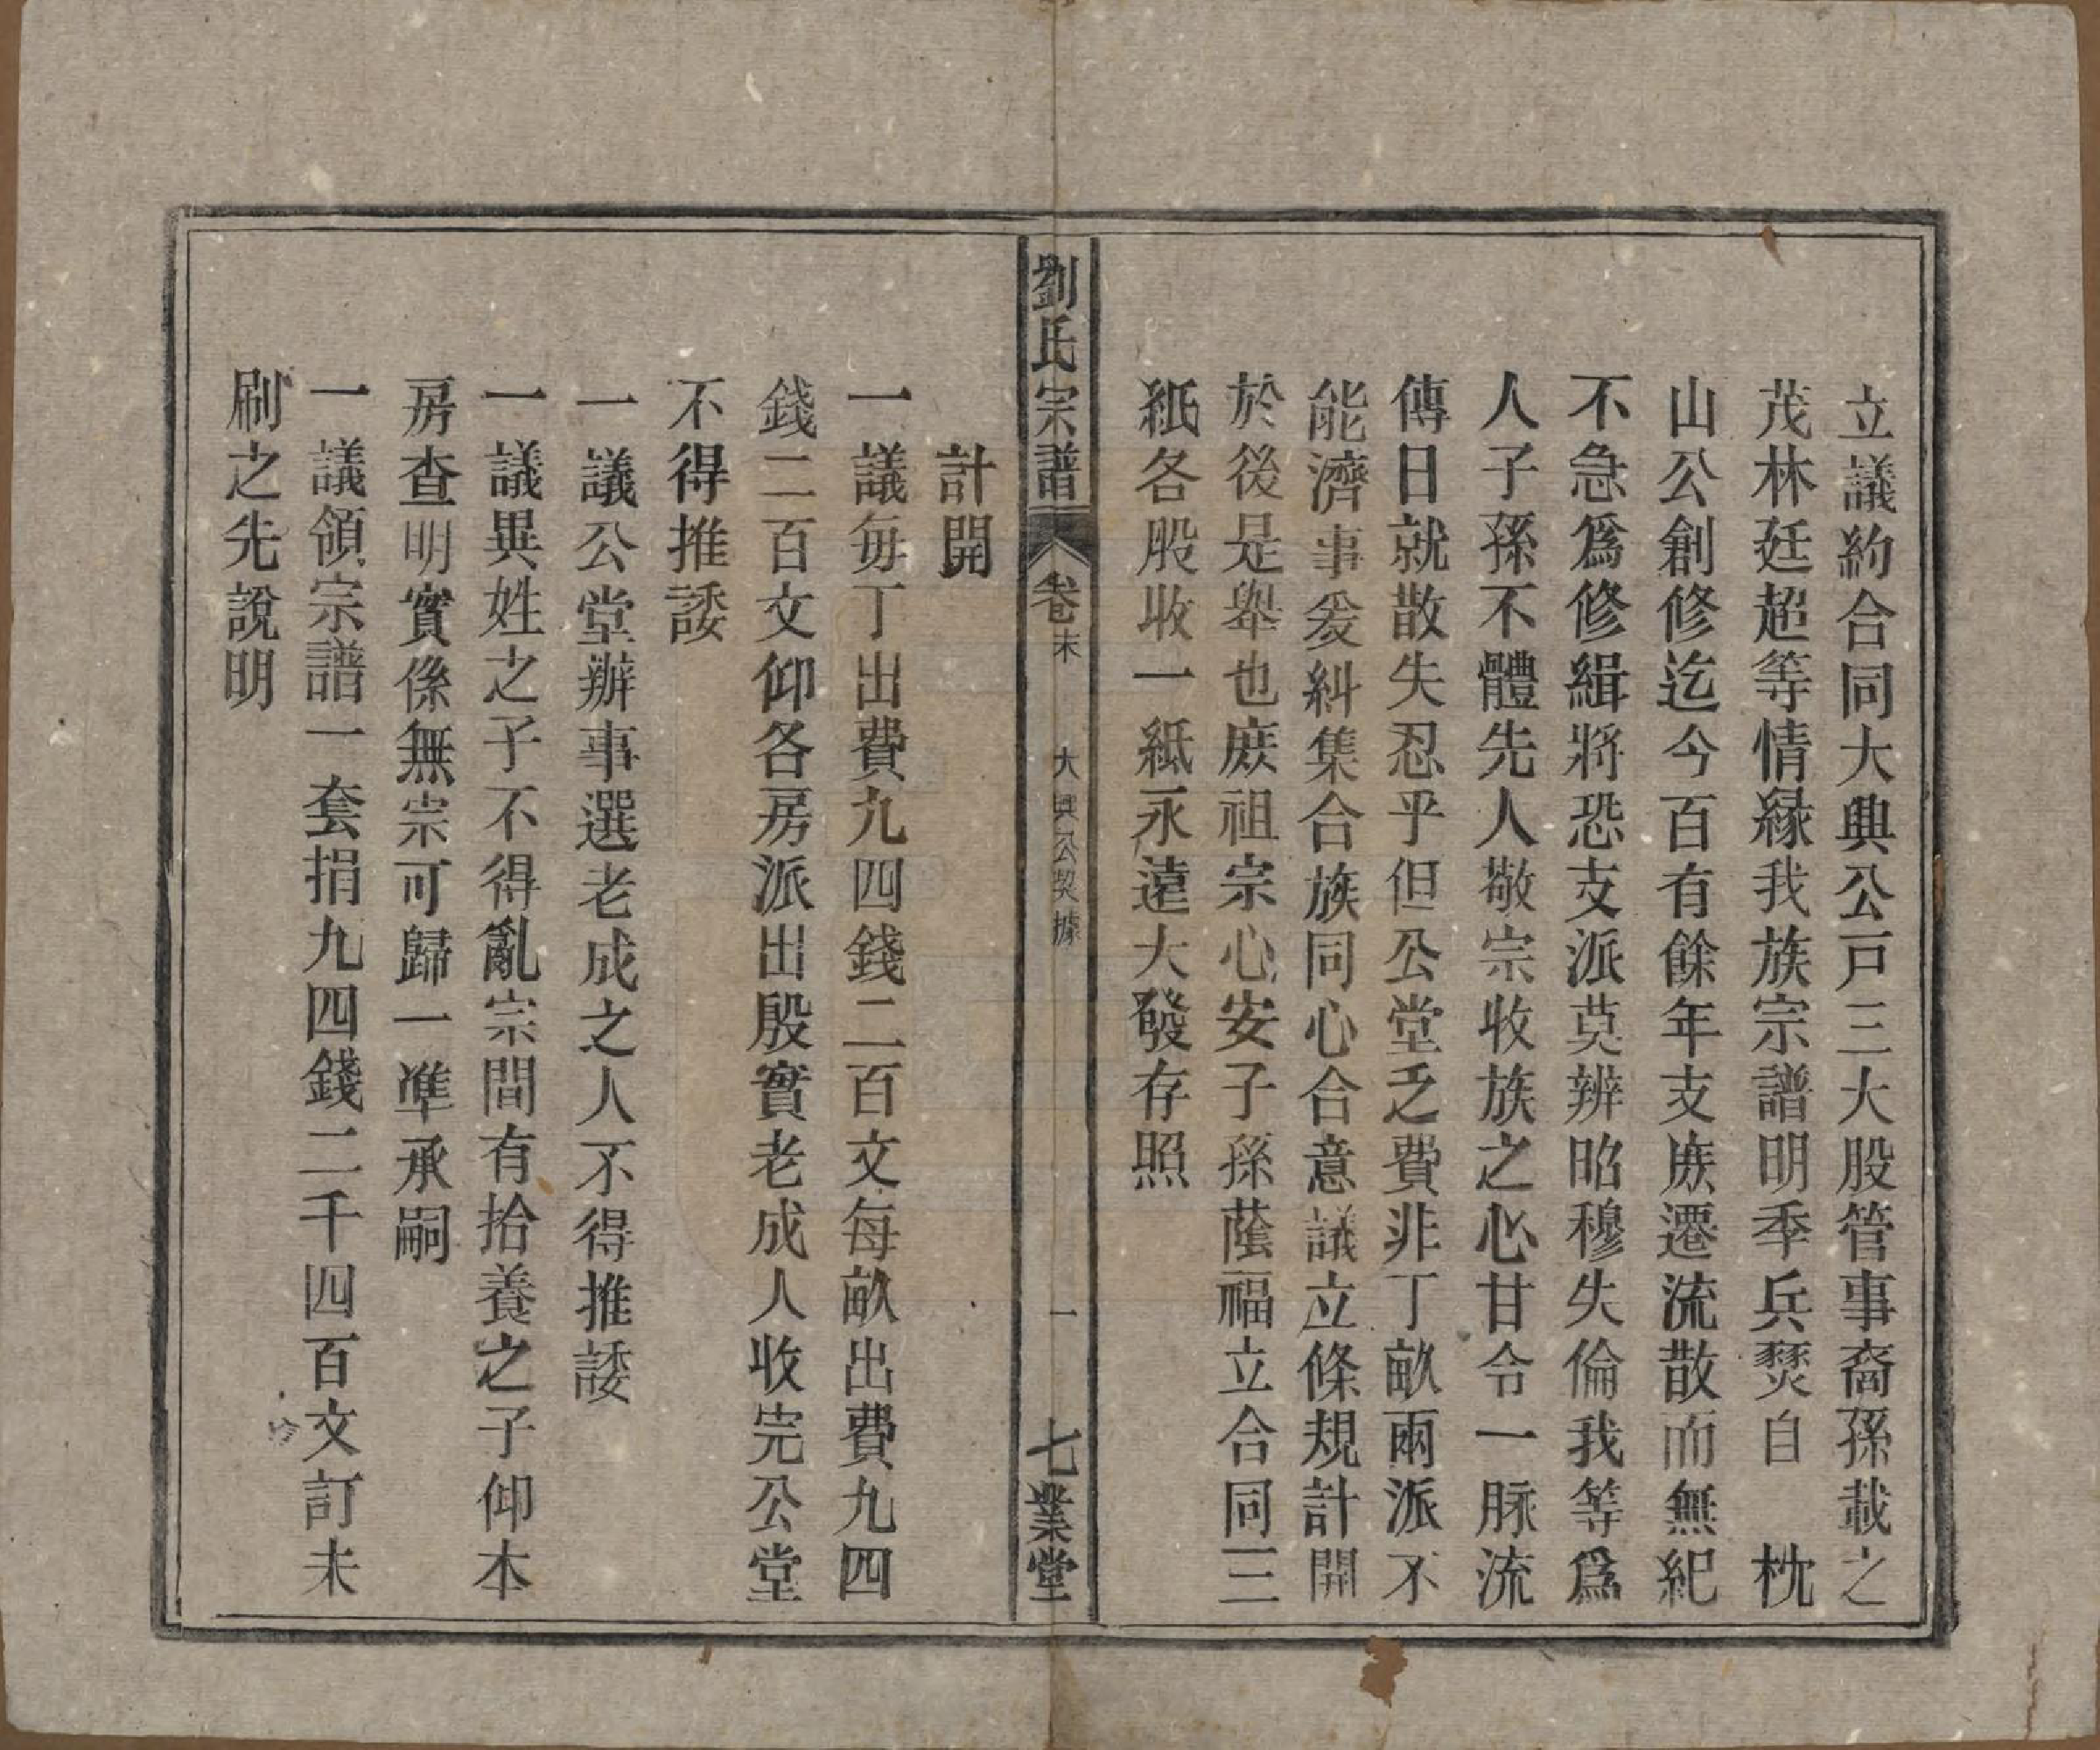 立議約合同大興公戸三大股管事裔孫載之
茂林廷超等情縁我族宗譜明季兵燹自　枕
山公創修迄今百有餘年支族遷流散而無紀
不急爲修緝將恐支派莫辨昭穆失倫我等爲
人子孫不體先人敬宗收族之心甘令一脉流
傳日就散失忍乎但公堂乏費非丁畝兩派不
能濟事爰糾集合族同心合意議立條規計開
於後是舉也庶祖宗心安子孫蔭福立合同三
紙各股收一紙永遠大發存照
劉氏宗譜
卷末
大興公契據
一
七業堂
計開
一議每丁出費九四錢二百文每畝出費九四
錢二百文仰各房派出殷實老成人收完公堂
不得推諉
一議公堂辦事選老成之人不得推諉
一議異姓之子不得亂宗間有拾養之子仰本
房查明實係無宗可歸一準承嗣
一議領宗譜一套捐九四錢二千四百文訂未
刷之先說明